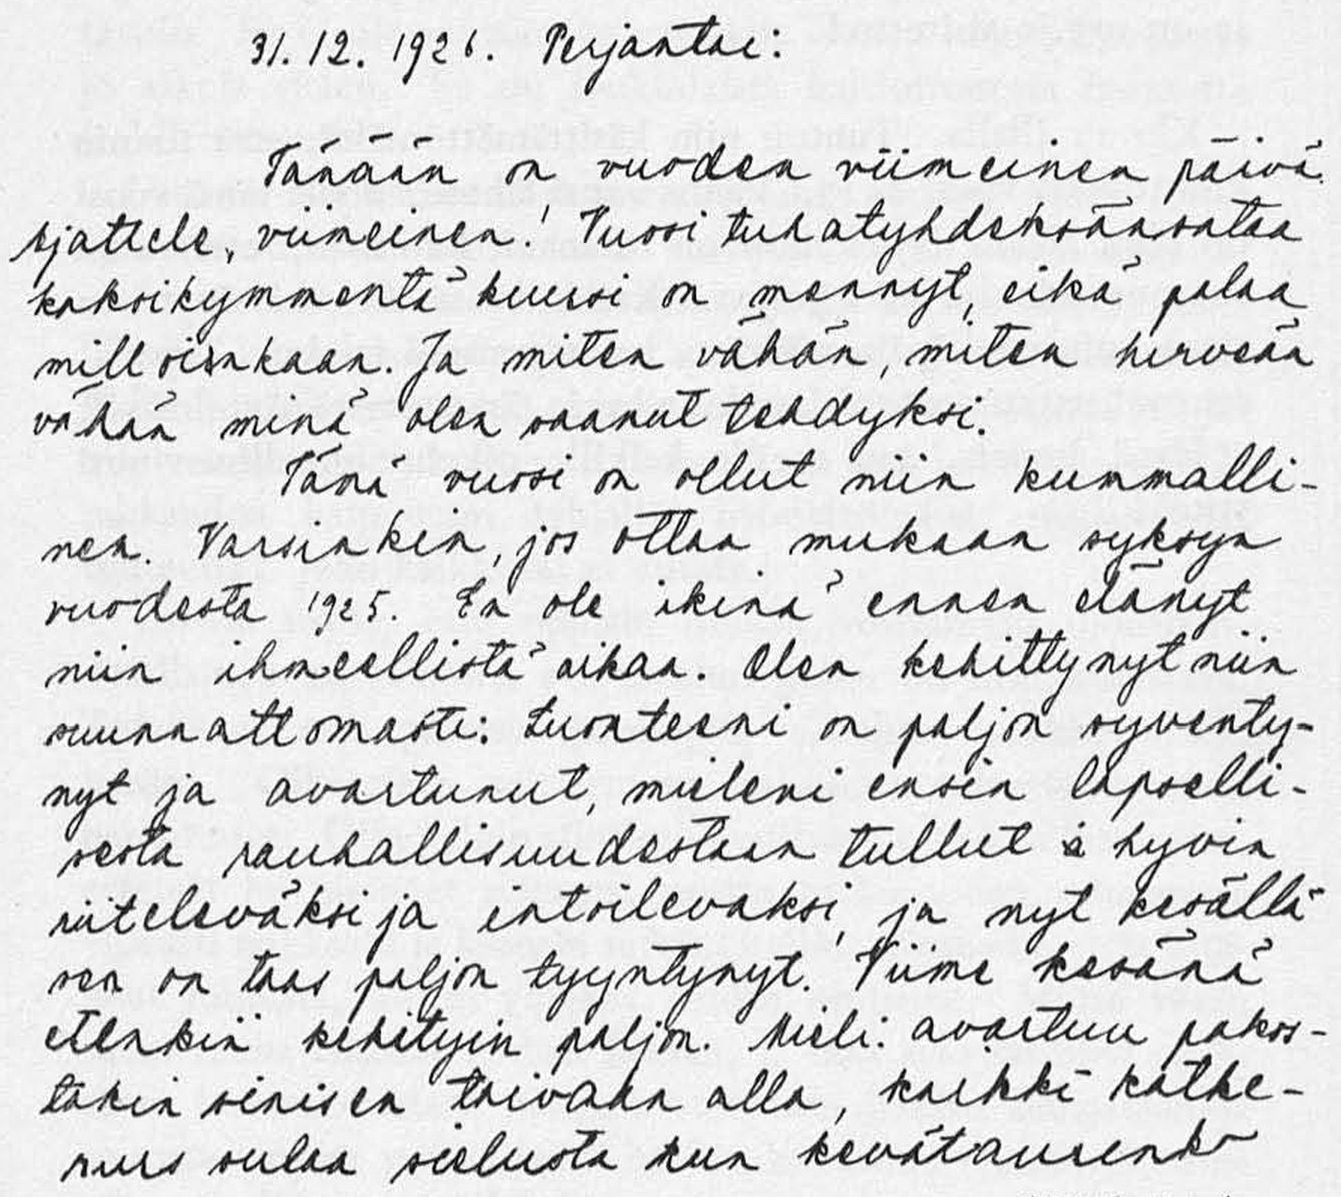 31.12. 1926. Perjantai:
Tänään on vuoden viimeinen päivä.
Ajattele, viimeinen! Vuosi tuhatyhdeksänsataa
kaksikymmentä kuusi on mennyt, eikä palaa
milloinkaan. Ja miten vähän, miten hirveän
vähän minä olen saanut tehdyksi.
Tänä vuosi on ollut niin kummalli-
nen. Varsinkin, jos ottaa mukaan syksyn
vuodesta 1925. En ole ikinä ennen elänyt
niin ihmeellistä aikaa. Olen kehittynyt niin
suunnattomasti: Luonteeni on paljon syventy-
nyt ja avartunut, mieleni ensin lapselli-
sesta rauhallisuudestaan tullut hyvin
riiteleväksi ja intoilevaksi, ja nyt kesällä
sen on taas paljon tyyntynyt. Viime kesänä
etenkin kehityin paljon. Mieli avartuu pakos-
takin sinisen taivaan alla, kaikki katke-
ruus sulaa sielusta kun kevätauringko